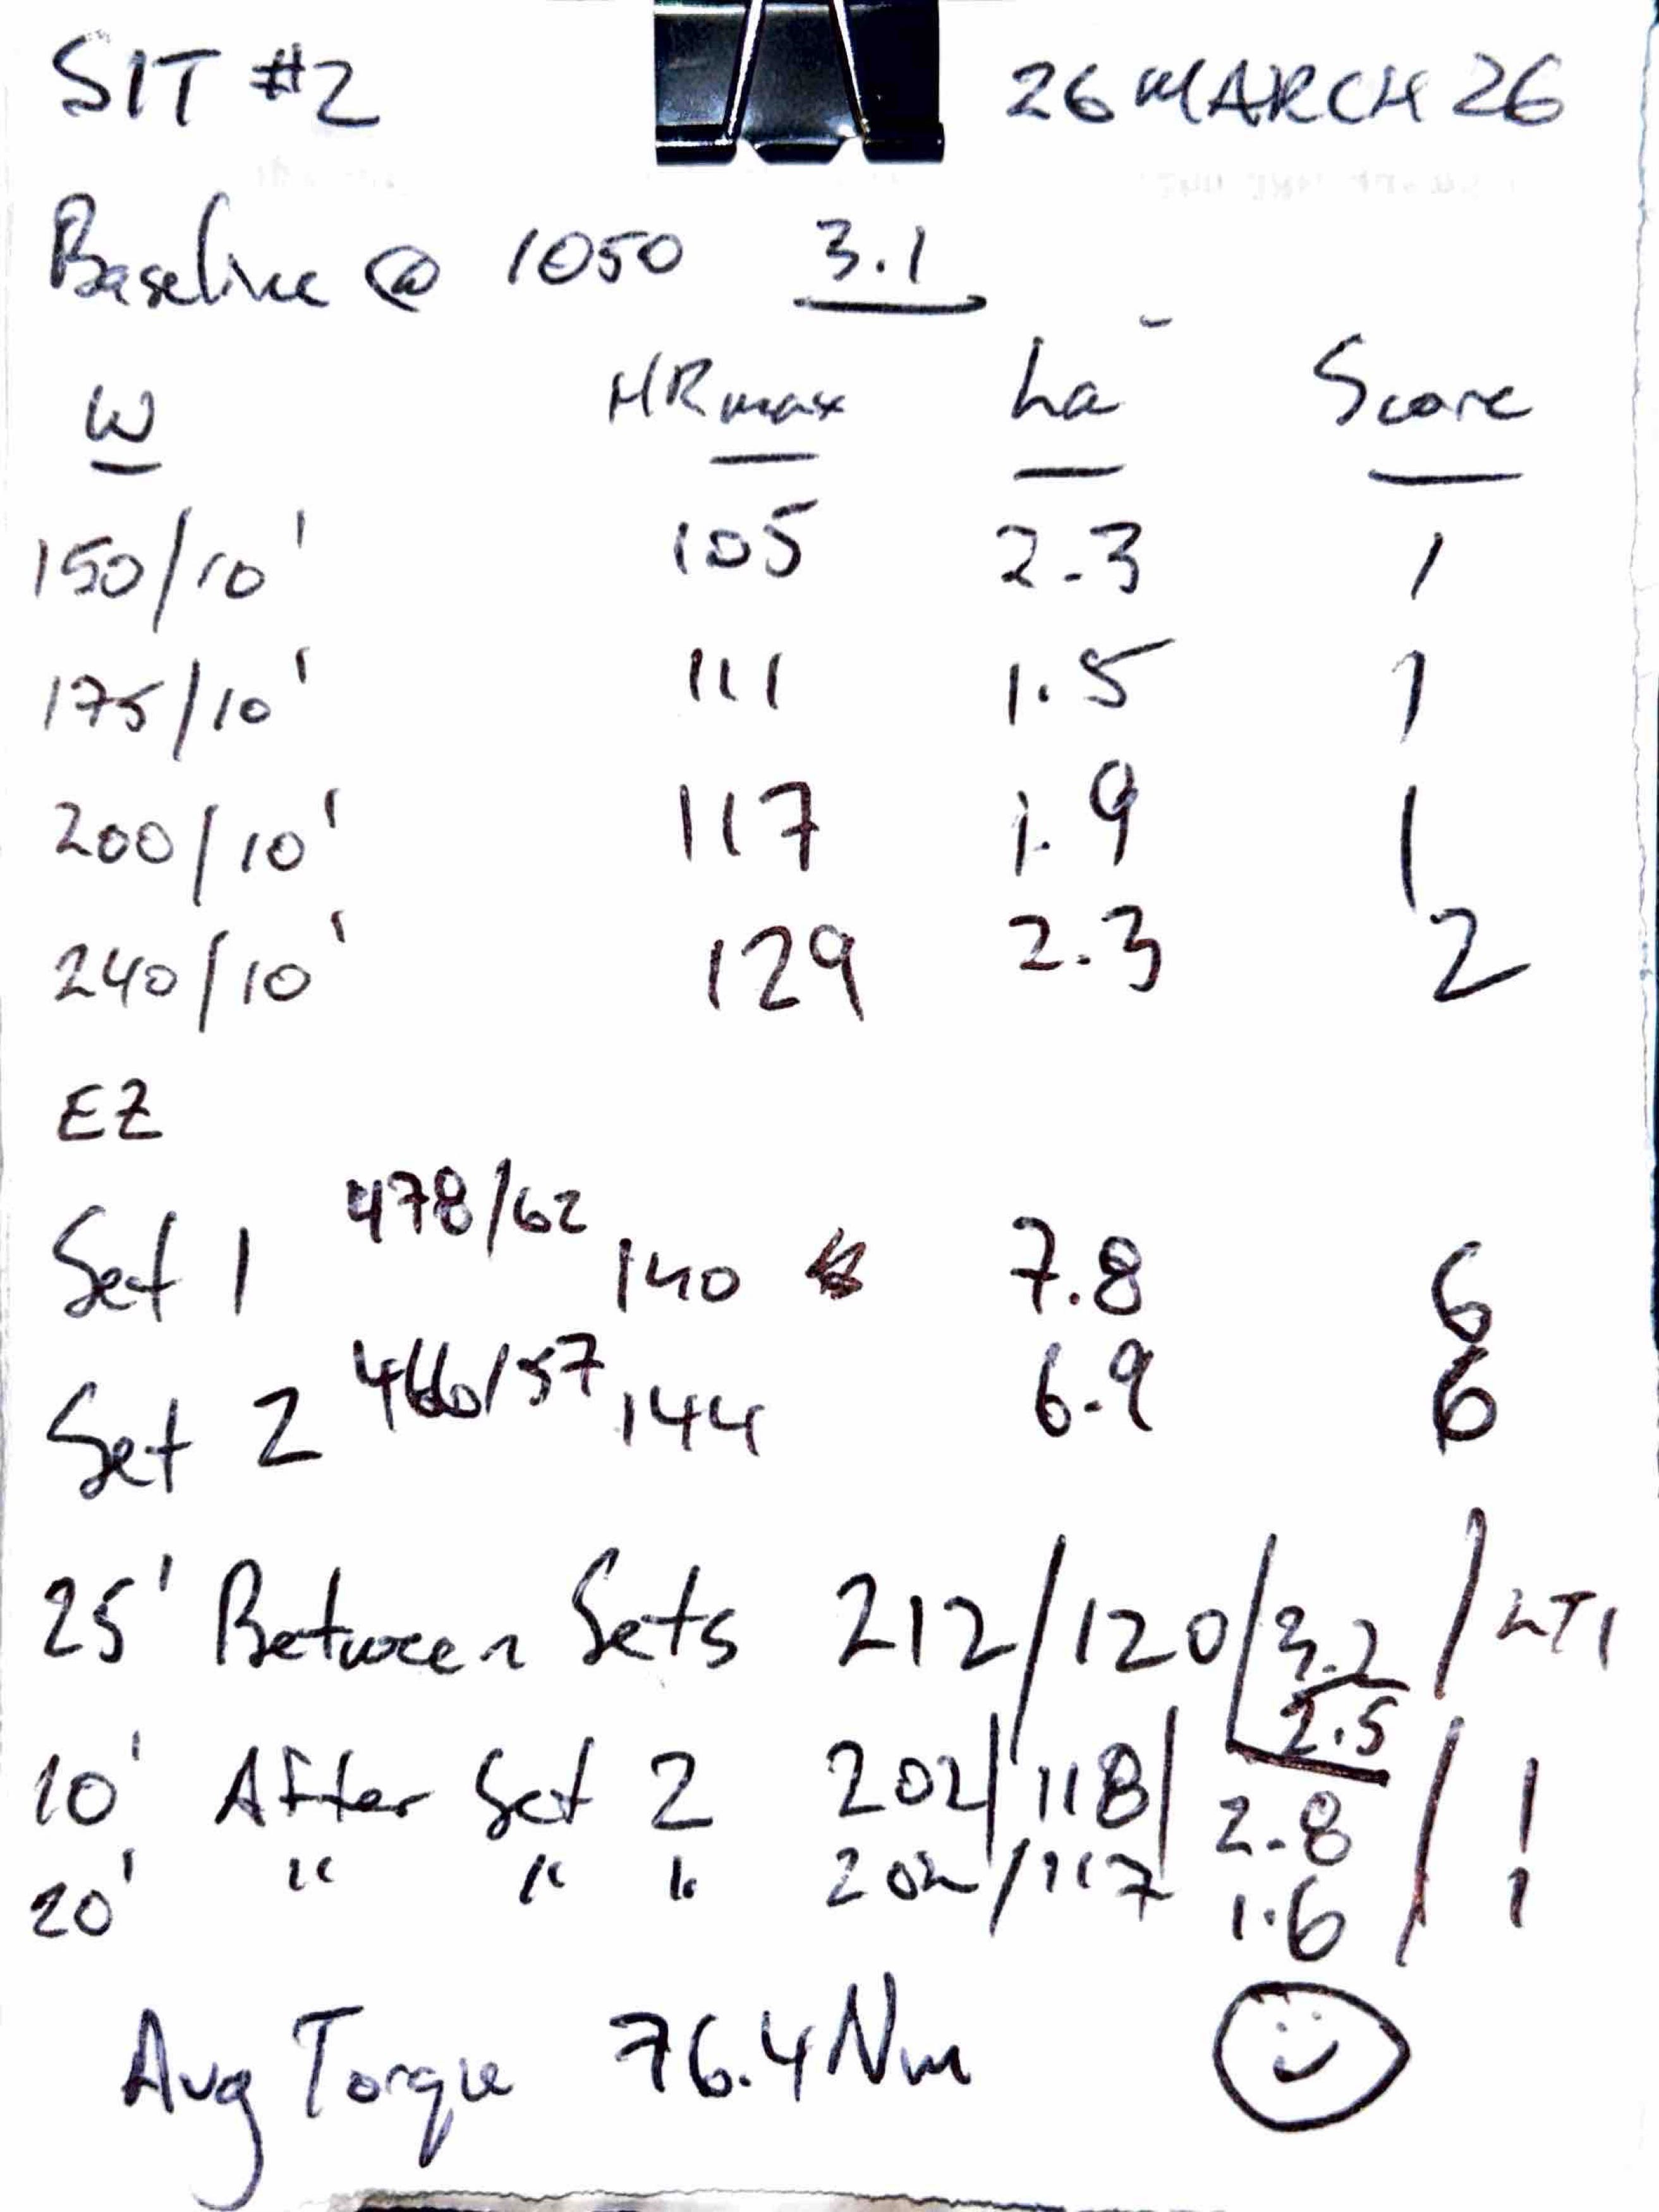 SIT #2 26 MARCH 26
Baseline @ 1050 3.1
W HRmax La⁻ Score
150/10' 105 2.3 1
175/10' 111 1.5 1
200/10' 117 1.9 1
240/10' 129 2.3 2
EZ
Set 1 478/62 140 7.8 6
Set 2 466/57 144 6.9 6
25' Between Sets 212/120/3.2 / LT1
2.5
10' After Set 2 202/118/2.8 / 1
20' " " " 202/117 1.6 / 1
Avg Torque 76.4 Nm